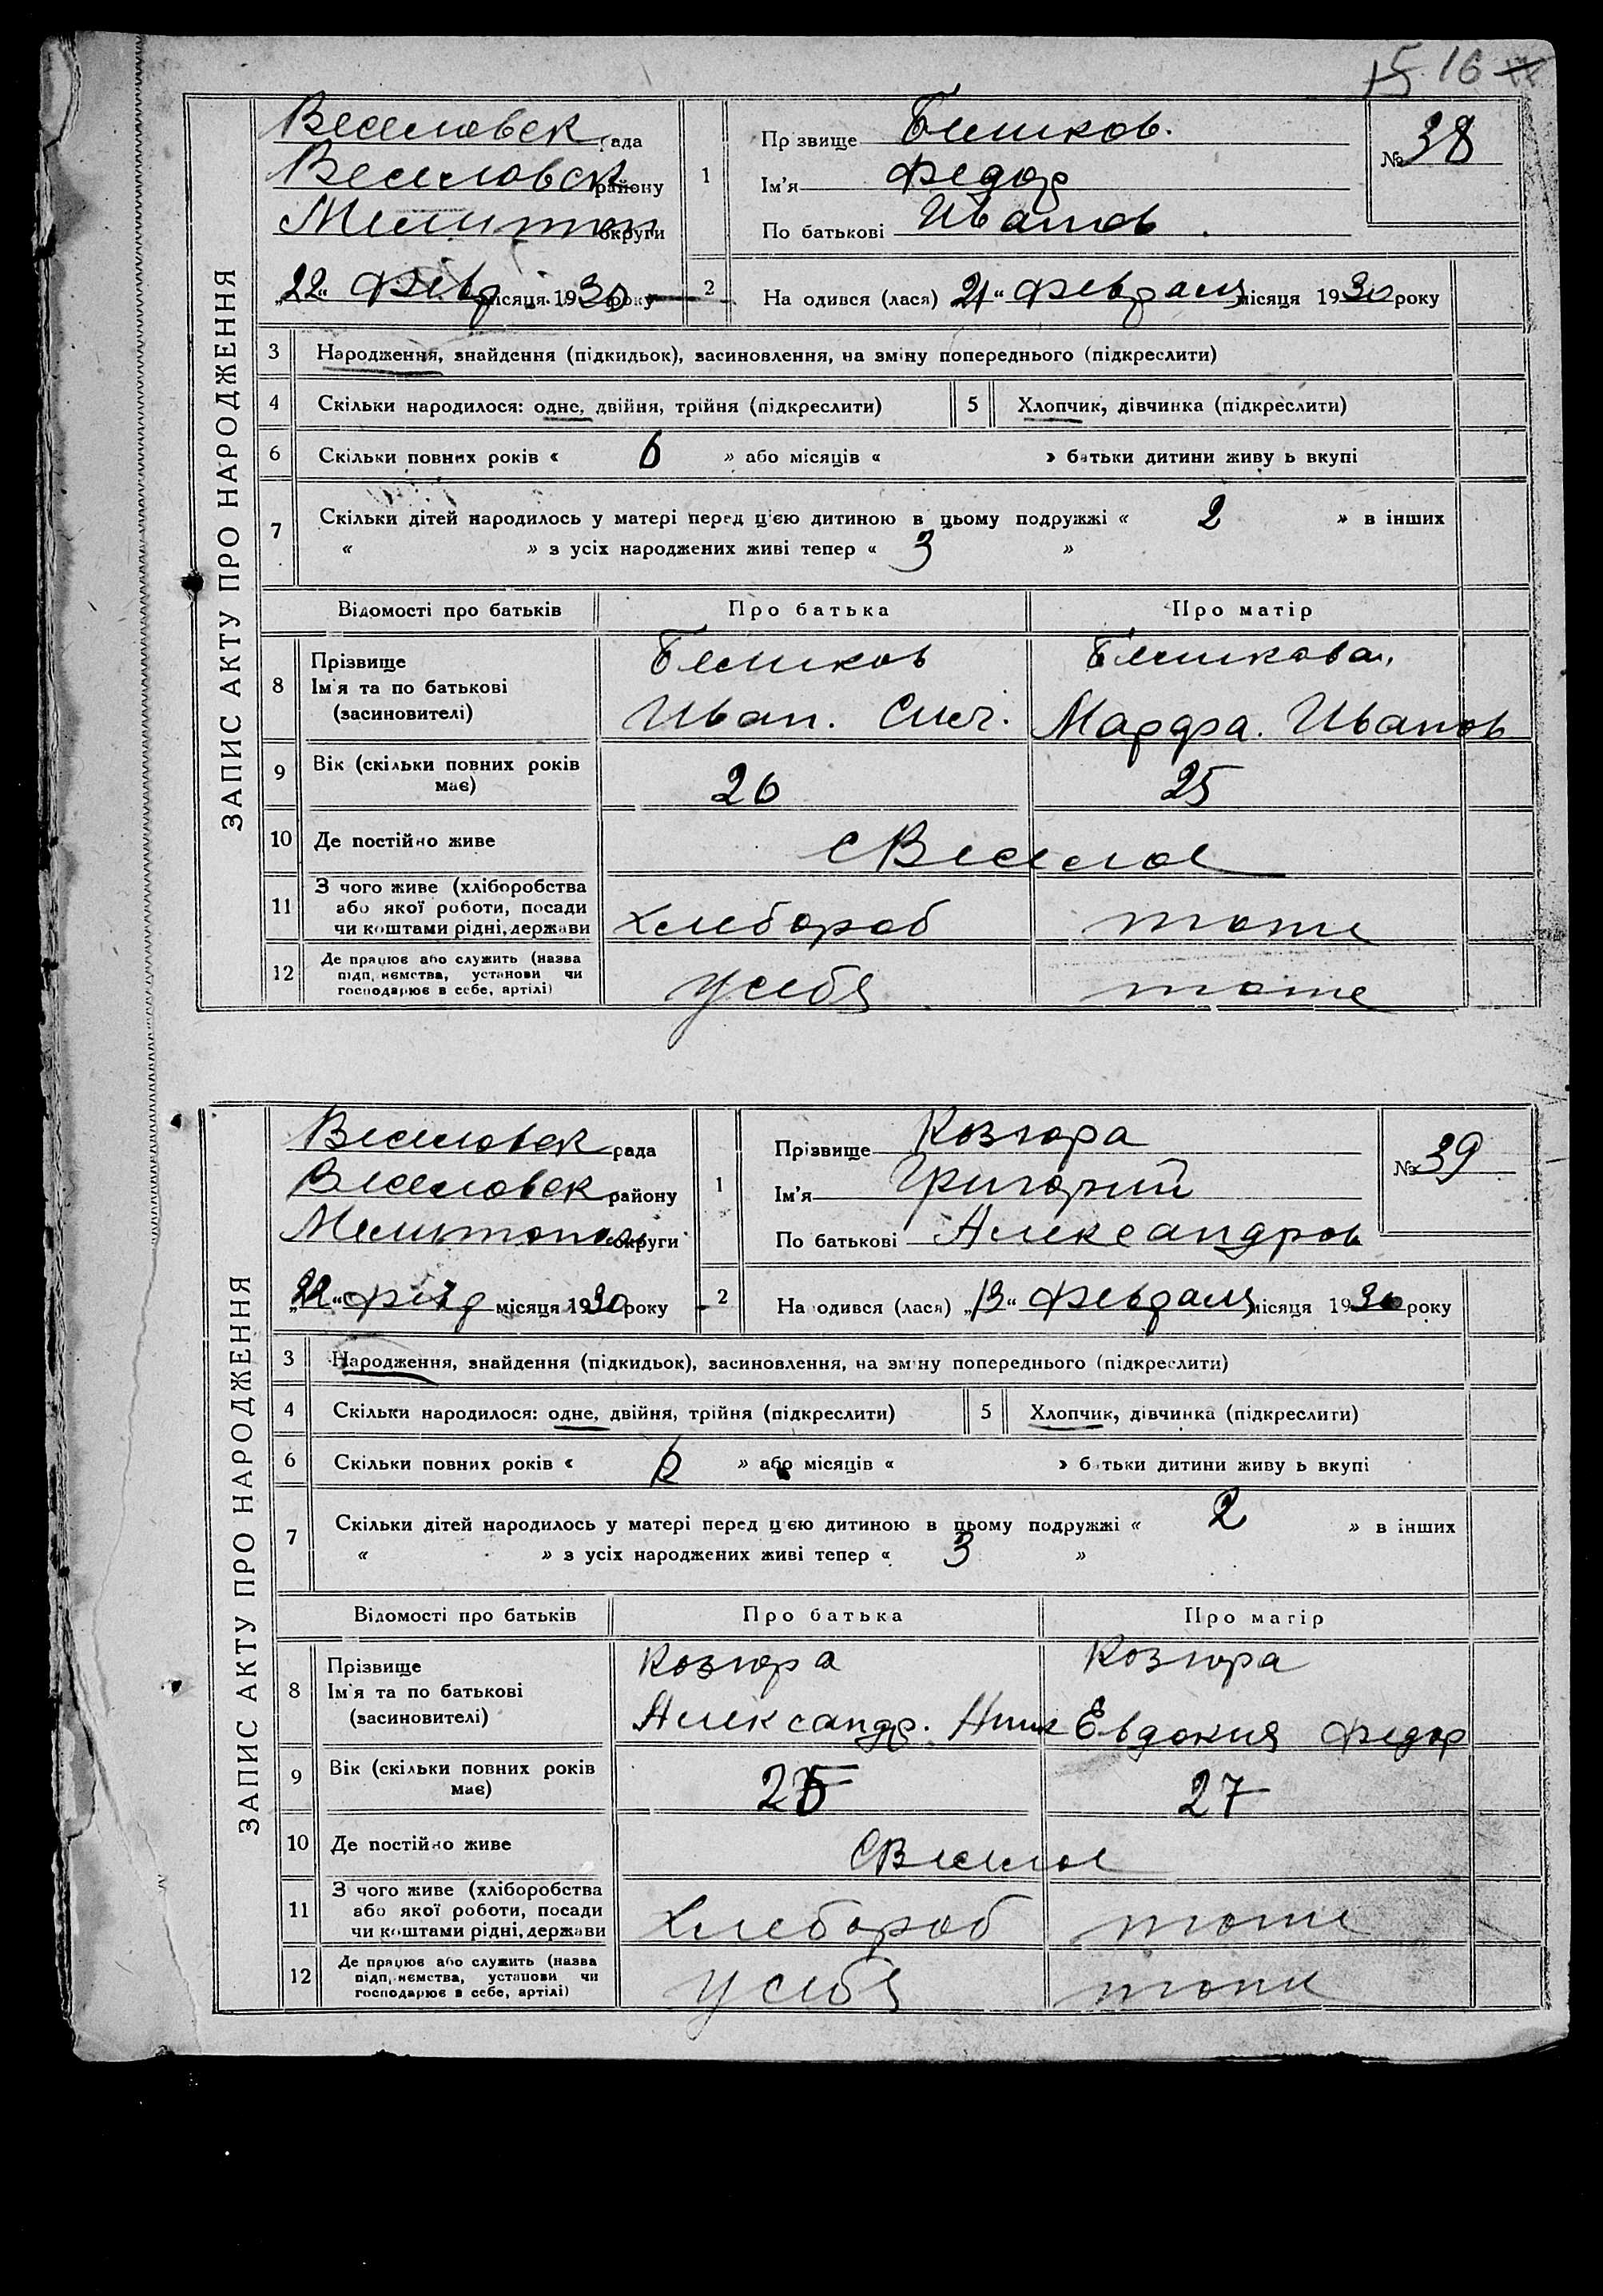 15 16
ЗАПИС АКТУ ПРО НАРОДЖЕННЯ
Веселовск рада
Веселовск району
Мелитоп округи
„22“ Февр місяця 1930 року
1
Прізвище
Ім'я Федор
По батькові Иванов.
№ 38
2
На одився (лася) 21“ Февраля місяця 1930 року
3 Народження, знайдення (підкидьок), засиновлення, на зміну попереднього (підкреслити)
4 Скільки народилося: одне, двійня, трійня (підкреслити) 5 Хлопчик, дівчинка (підкреслити)
6 Скільки повних років « 6 » або місяців « » батьки дитини живу ь вкупі
7 Скільки дітей народилось у матері перед цією дитиною в цьому подружжі « 2 » в інших
« » з усіх народжених живі тепер « 3 »
Відомості про батьків Про батька Про матір
8 Прізвище
Ім'я та по батькові Иван. Марфа. Иванов
(засиновителі)
9 Вік (скільки повних років має) 26 25
10 Де постійно живе с Веселое
11 З чого живе (хліборобства
або якої роботи, посади
чи коштами рідні, держави Хлебороб тоже
12 Де працює або служить (назва
підп,иємства, установи чи
господарює в себе, артілі) у себя тоже
ЗАПИС АКТУ ПРО НАРОДЖЕННЯ
Веселовск рада
Веселовск району
Мелитопол округи
„22“ місяця 1930 року
1
Прізвище Козюра
Ім'я Григорий
По батькові Александров
№ 39
2
На одився (лася) „13“ Февраля місяця 1930 року
3 Народження, знайдення (підкидьок), засиновлення, на зміну попереднього (підкреслити)
4 Скільки народилося: одне, двійня, трійня (підкреслити) 5 Хлопчик, дівчинка (підкреслити)
6 Скільки повних років « » або місяців « » батьки дитини живу ь вкупі
7 Скільки дітей народилось у матері перед цією дитиною в цьому подружжі « 2 » в інших
« » з усіх народжених живі тепер « 3 »
Відомості про батьків Про батька Про матір
8 Прізвище Козюра Козюра
Ім'я та по батькові Александр. Евдокия Федор
(засиновителі)
9 Вік (скільки повних років має) 25 27
10 Де постійно живе с Веселое
11 З чого живе (хліборобства
або якої роботи, посади
чи коштами рідні, держави Хлебороб тоже
12 Де працює або служить (назва
підп,иємства, установи чи
господарює в себе, артілі) у себя тоже